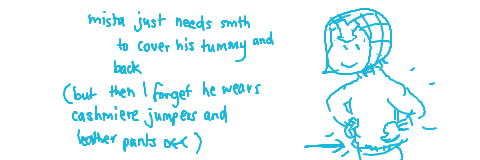 misha just needs smth
to cover his tummy and
back
(but then I forget he wears
cashmiere jumpers and
leather pants)